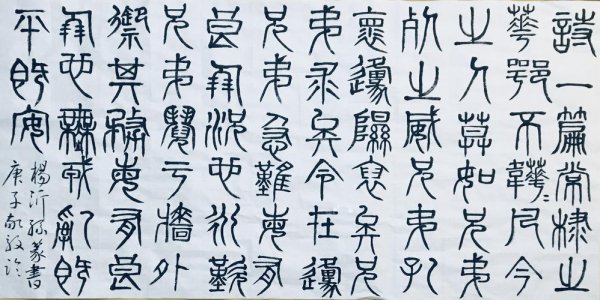 詩一篇常棣之
華鄂不韡〻凡今
之人莫如兄弟
死之威兄弟孔
褱邍隰裒矣兄
弟求矣今在邍
兄弟急難每有
良朋況也永歎
兄弟鬩亏牆外
禦其務每有良
朋也無戎亂既
平既安
楊沂孫篆書
庚子敬臨